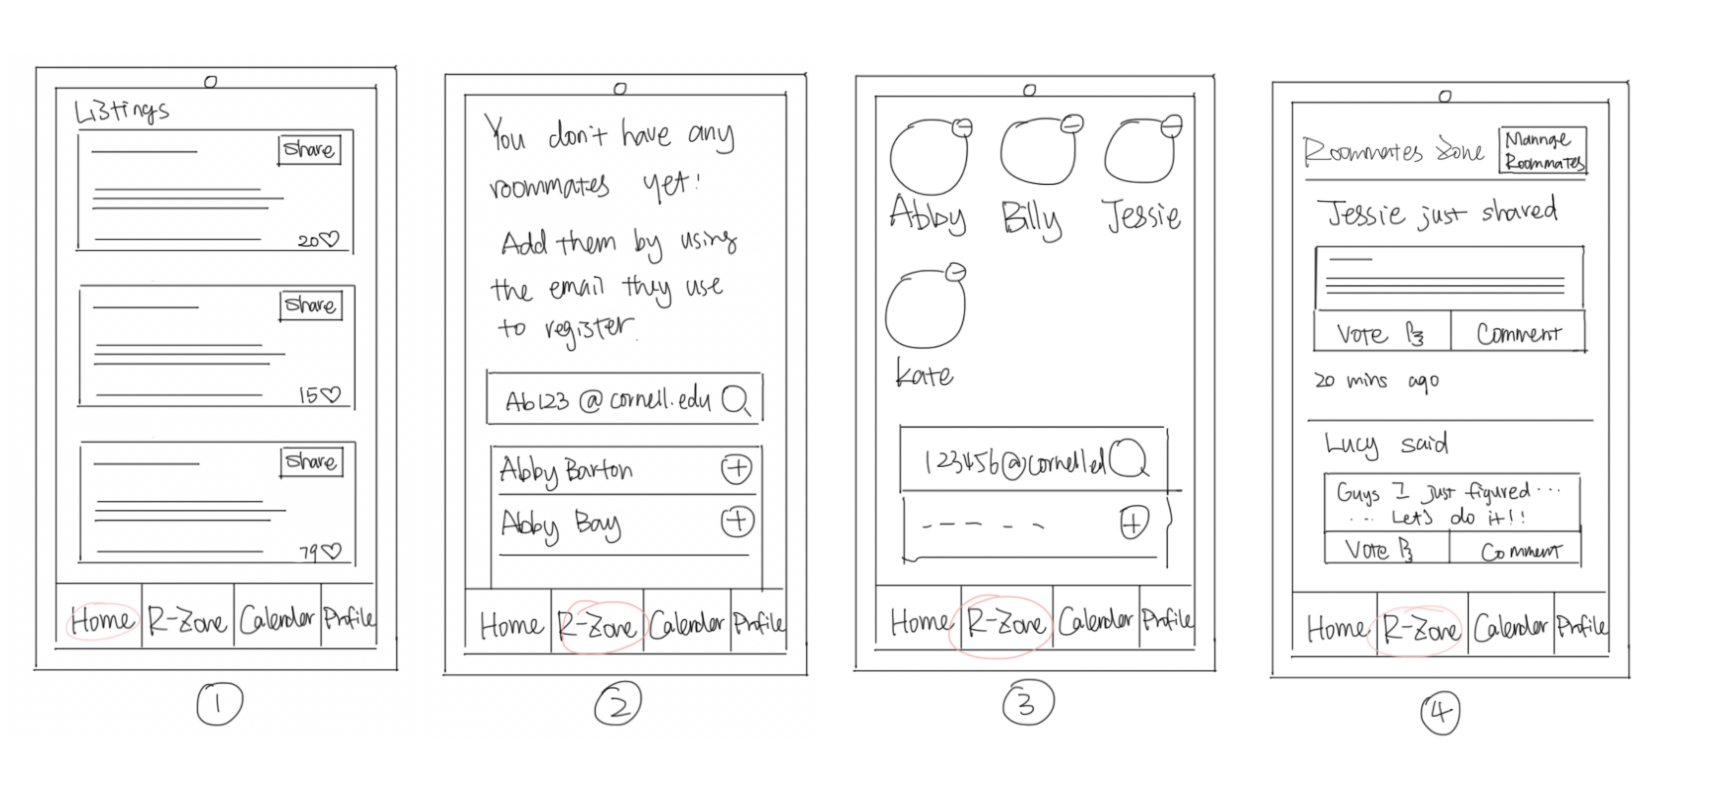 Listings
Share
20♡
Share
15♡
Share
79♡
Home R-Zone Calendar Profile
1
You don't have any
roommates yet!
Add them by using
the email they use
to register.
Ab123 @cornell.edu
Abby Barton +
Abby Bay +
Home R-Zone Calendar Profile
2
Abby Billy Jessie
Kate
123456@cornell.ed
Home R-Zone Calendar Profile
3
Roommates Zone
Manage
Roommates
Jessie just shared
Vote Comment
20 mins ago
Lucy said
Guys I just figured...
... Let's do it!!
Vote Comment
Home R-Zone Calendar Profile
4